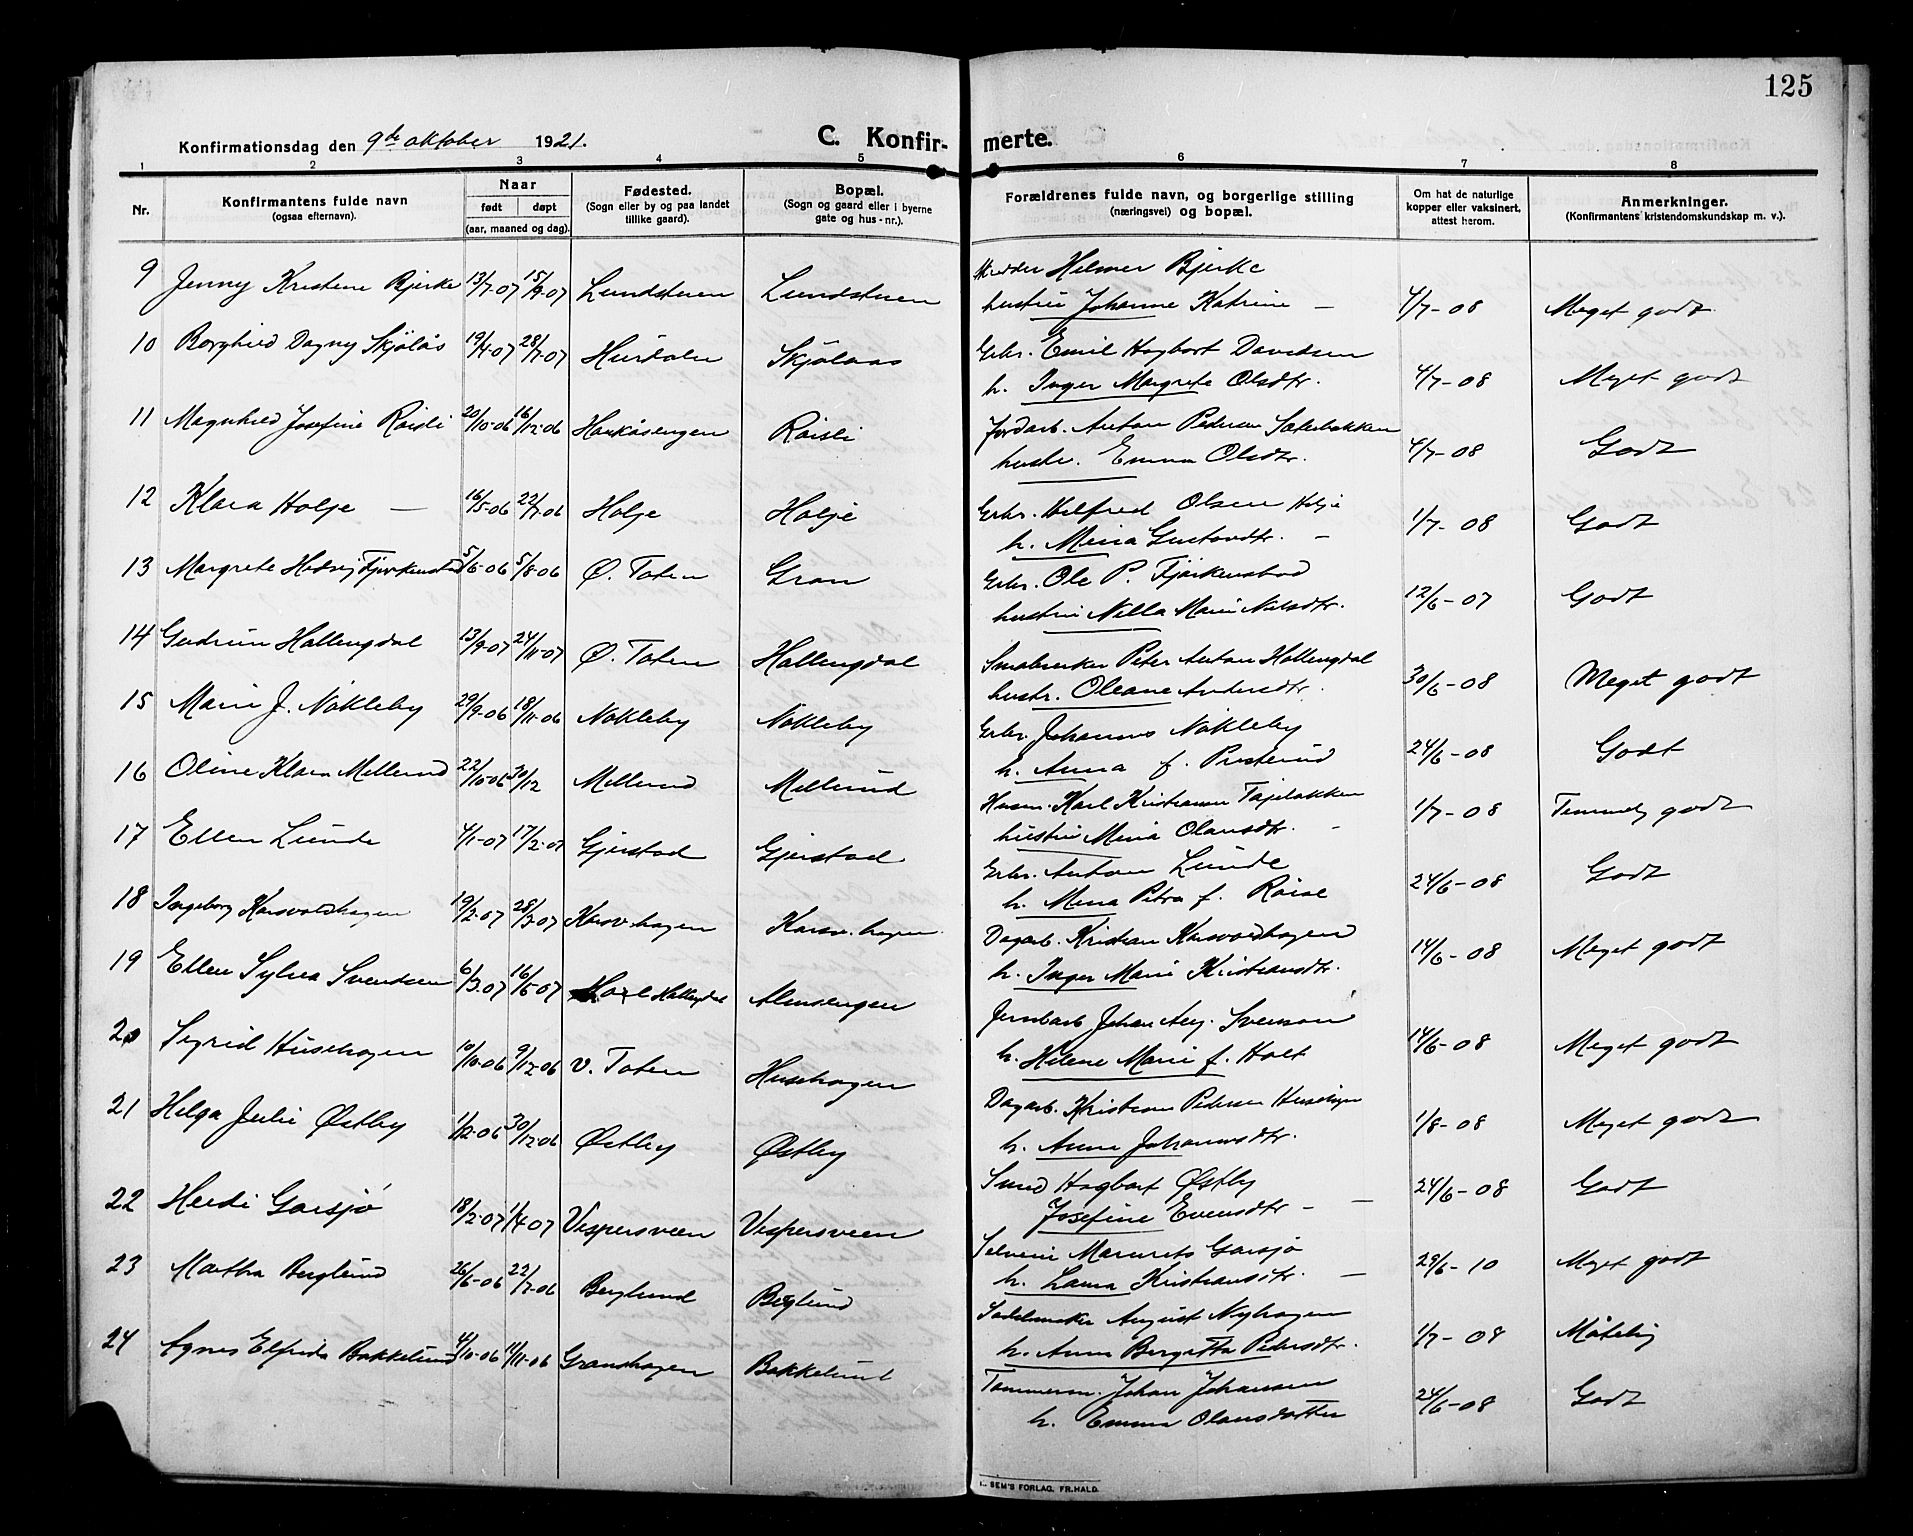 125
Konfirmationsdag den 9de oktober 1921.
C. Konfirmerte.
1 2 3 4 5 6 7 8
Nr.
Konfirmantens fulde navn
(ogsaa efternavn).
Naar
født døpt
(aar, maaned og dag).
Fødested.
(Sogn eller by og paa landet
tillike gaard).
Bopæl.
(Sogn og gaard eller i byerne
gate og hus-nr.).
Forældrenes fulde navn, og borgerlige stilling
(næringsvei) og bopæl.
Om hat de naturlige
kopper eller vaksinert,
attest herom.
Anmerkninger.
(Konfirmantens kristendomskundskap m. v.).
9 Jenny Kristene Bjerke 13/7-07 15/9-07 Lundstuen Lundstuen
Helmer Bjerke
hustru Johanne Katrine — 4/7-08 Meget godt
10 Borghild Dagny Skjølås 19/4-07 28/7-07 Hurdalen Skjølaas
Grbr. Emil Hagbart Davidsen
h. Inger Margrete Olsdtr. 4/7-08 Meget godt
11 Magnhild Josefine Røisli 20/10-06 16/12-06 Haukåsengen Røisli
Jordarb. Anton Pedersen Sæterbakken
hustr. Emma Olsdtr. 4/7-08 Godt
12 Klara Holje — 16/5-06 22/7-06 Holje Holje
Grbr. Hilfred Olsen Holje
h. Mina Gustavdtr. - 1/7-08 Godt
13 Margrete Hedvig Fjørkenstad 5/6-06 5/8-06 Ø. Toten Gran
Grbr. Ole P. Fjørkenstad
hustru Nilla Marie Nilsdtr. 12/6-07 Godt
14 Gudrun Hallingdal 13/9-07 24/11-07 Ø. Toten Hallingdal
Peter Anton Hallengdal
hustr. Oleane Andersdtr. 30/6-08 Meget godt
15 Marie J. Nøkleby 29/9-06 18/11-06 Nøkleby Nøkleby
Grbr. Johannes Nøkleby
h. Anna f. Prosterud 24/6-08 Godt
16 Oline Klara Millerud 22/10-06 30/12 Millerud Millerud
Husm. Karl Kristiansen Tajebakken
hustru Mina Olausdtr. - 1/7-08 Temmelig godt
17 Ellen Lunde 4/1-07 17/2-07 Gjerstad Gjerstad
Grbr. Anton Lunde
h. Mina Petra f. Røise 24/6-08 Godt
18 Ingeborg Korsvoldshagen 19/2-07 28/3-07 Korsv.hagen Korsv.hagen
Dagarb. Kristian Korsvoldhagen
h. Inger Marie Kristiansdtr. 14/6-08 Meget godt
19 Ellen Sylvia Svendsen 6/3-07 16/5-07 Hallingdal Almsengen
Jernbarb. Johan Aug. Svenson
h. Helene Marie f. Holt 14/6-08 Meget godt
20 Sigrid Husehagen 10/10-06 9/12-06 V. Toten Husehagen
Dagarb. Kristian Pedersen Husehagen
h. Anna Johannesdtr. 1/8-08 Meget godt
21 Helga Julie Østby 1/12-06 30/12-06 Østby Østby
Smed Hagbart Østby
Josefine Evensdtr - — 24/6-08 Godt
22 Heidi Garsjø 18/2-07 1/4-07 Vispersveen Vispersveen
Selveier Garsjø
h. Laura Kristiansdtr. — 29/6-10 Meget godt
23 Martha Berglund 26/6-06 22/7-06 Berglund Berglund
Sadelmaker August Nyhagen
h. Anna Bergitta Pedersdtr. 1/7-08 Måtelig
24 Agnes Elfrida Bakkelund 4/10-06 11/11-06 Granshagen Bakkelund
Tømmerm. Johan Johansen
h. Emma Olausdatter 24/6-08 Godt
SEM'S FORLAG, FR.HALD.